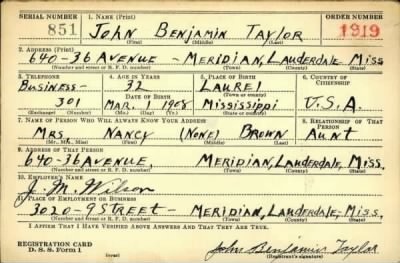 SERIAL NUMBER 1. NAME (Print) ORDER NUMBER
851 JOHN BENJAMIN TAYLOR 1919
(First) (Middle) (Last)
2. ADDRESS (Print)
640-36 AVENUE - MERIDIAN, LAUDERDALE MISS
(Number and street or R. F. D. number) (Town) (County) (State)
3. TELEPHONE 4. AGE IN YEARS 5. PLACE OF BIRTH 6. COUNTRY OF CITIZENSHIP
BUSINESS- 32 LAUREL
DATE OF BIRTH (Town or county)
301 MAR. 1 1908 MISSISSIPPI U.S.A.
(Exchange) (Number) (Mo.) (Day) (Yr.) (State or country)
7. NAME OF PERSON WHO WILL ALWAYS KNOW YOUR ADDRESS 8. RELATIONSHIP OF THAT PERSON
MRS. NANCY (NONE) BROWN AUNT
(Mr., Mrs., Miss) (First) (Middle) (Last)
9. ADDRESS OF THAT PERSON
640-36 AVENUE, MERIDIAN, LAUDERDALE, MISS.
(Number and street or R. F. D. number) (Town) (County) (State)
10. EMPLOYER'S NAME
J. M. Wilson
11. PLACE OF EMPLOYMENT OR BUSINESS
3020-9 STREET- MERIDIAN, LAUDERDALE, MISS.
(Number and street or R. F. D. number) (Town) (County) (State)
I AFFIRM THAT I HAVE VERIFIED ABOVE ANSWERS AND THAT THEY ARE TRUE.
REGISTRATION CARD
D. S. S. Form 1 John Benjamin Taylor
(Registrant's signature)